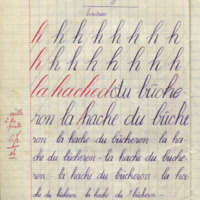 h h h h h h h h
h h h h h h h h
la hache du bûche-
ron la hache du bûche
ron - la hache du bûcheron - la ha-
che du bûcheron - la hache du bûche-
ron - la hache du bûcheron - la ha
che du bûcheron la hache du bûcheron -